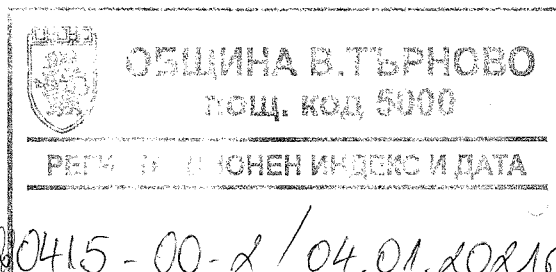 ОБЩИНА В.ТЪРНОВО
пощ. код 5000
РЕГИСТРАЦИОНЕН ИНДЕКС И ДАТА
0415-00-2/04.01.2021г